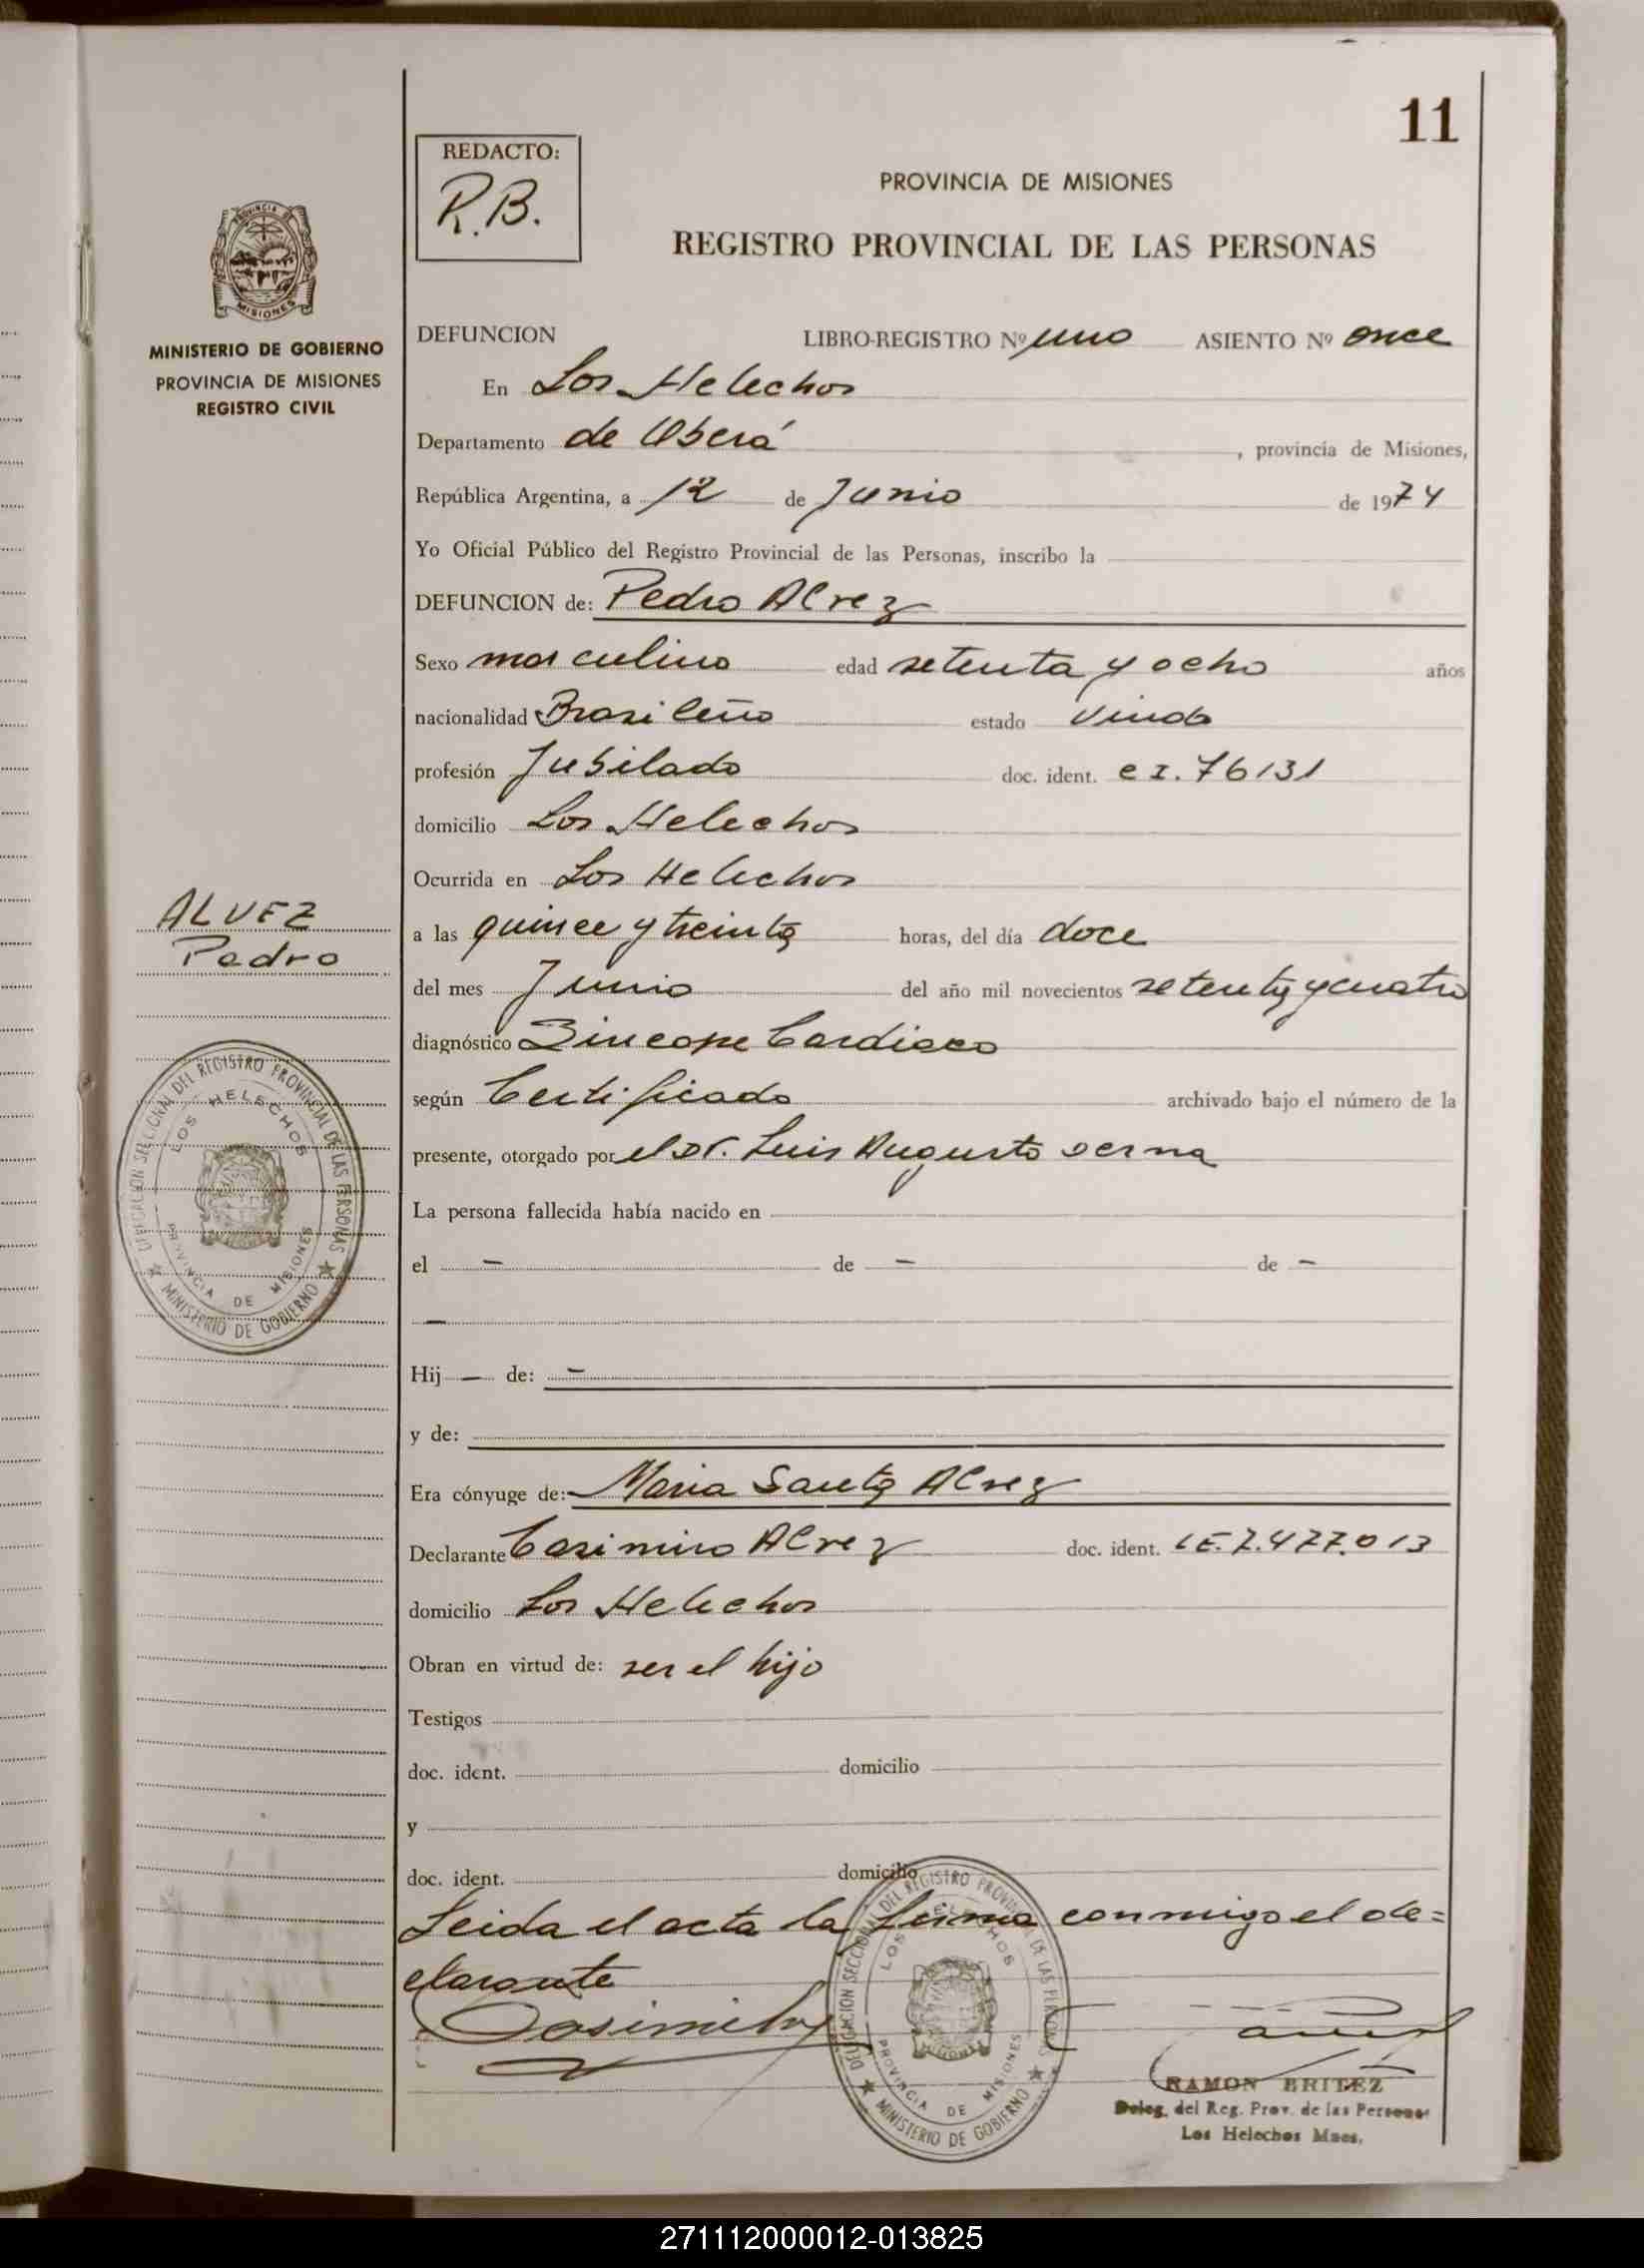 11
REDACTO:
R.B.
PROVINCIA DE MISIONES
REGISTRO PROVINCIAL DE LAS PERSONAS
MINISTERIO DE GOBIERNO
PROVINCIA DE MISIONES
REGISTRO CIVIL
DEFUNCION LIBRO-REGISTRO Nº uno ASIENTO Nº once
En Los Helechos
Departamento de Oberá, provincia de Misiones,
República Argentina, a 12 de Junio de 1974
Yo Oficial Público del Registro Provincial de las Personas, inscribo la
DEFUNCION de: Pedro Alvez
Sexo masculino edad setenta y ocho años
nacionalidad Brasileño estado Viudo
profesión Jubilado doc. ident. C I. 76131
domicilio Los Helechos
Ocurrida en Los Helechos
ALVEZ
Pedro
a las quince y treinta horas, del día doce
del mes Junio del año mil novecientos setenta y cuatro
diagnóstico Sincope Cardiaco
según Certificado archivado bajo el número de la
presente, otorgado por el Dr. Luis Augusto Derna
La persona fallecida había nacido en
el - de - de -
-
Hij - de: -
y de:
Era cónyuge de: Maria Santa Alvez
Declarante Casimiro Alvez doc. ident. LE. 7.477.013
domicilio Los Helechos
Obran en virtud de: ser el hijo
Testigos
doc. ident. domicilio
y
doc. ident. domicilio
Leida el acta la firma conmigo el de=
clarante
DELEGACION SECCIONAL DEL REGISTRO PROVINCIAL DE LAS PERSONAS
LOS HELECHOS
PROVINCIA DE MISIONES
★ MINISTERIO DE GOBIERNO ★
DELEGACION SECCIONAL DEL REGISTRO PROVINCIAL DE LAS PERSONAS
LOS HELECHOS
PROVINCIA DE MISIONES
★ MINISTERIO DE GOBIERNO ★
RAMON BRITEZ
Deleg. del Reg. Prov. de las Personas
Los Helechos Mnes.
271112000012-013825